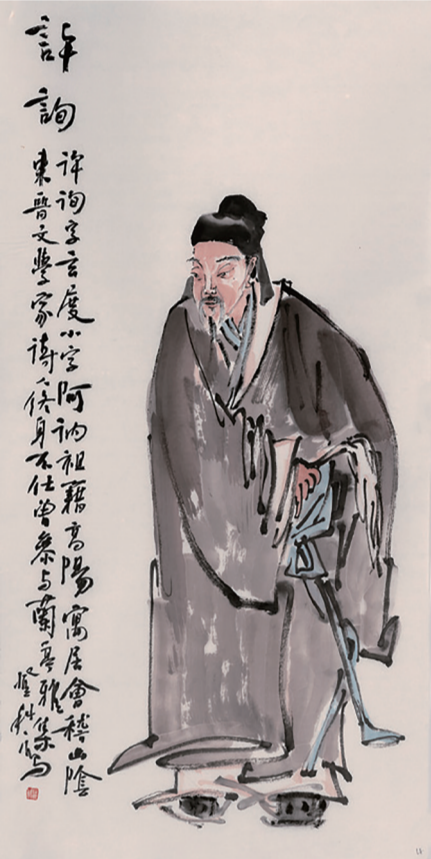 許詢
許詢字玄度小字阿訥祖籍高陽寓居會稽山陰
東晉文學家詩人終身不仕曾參与蘭亭雅集